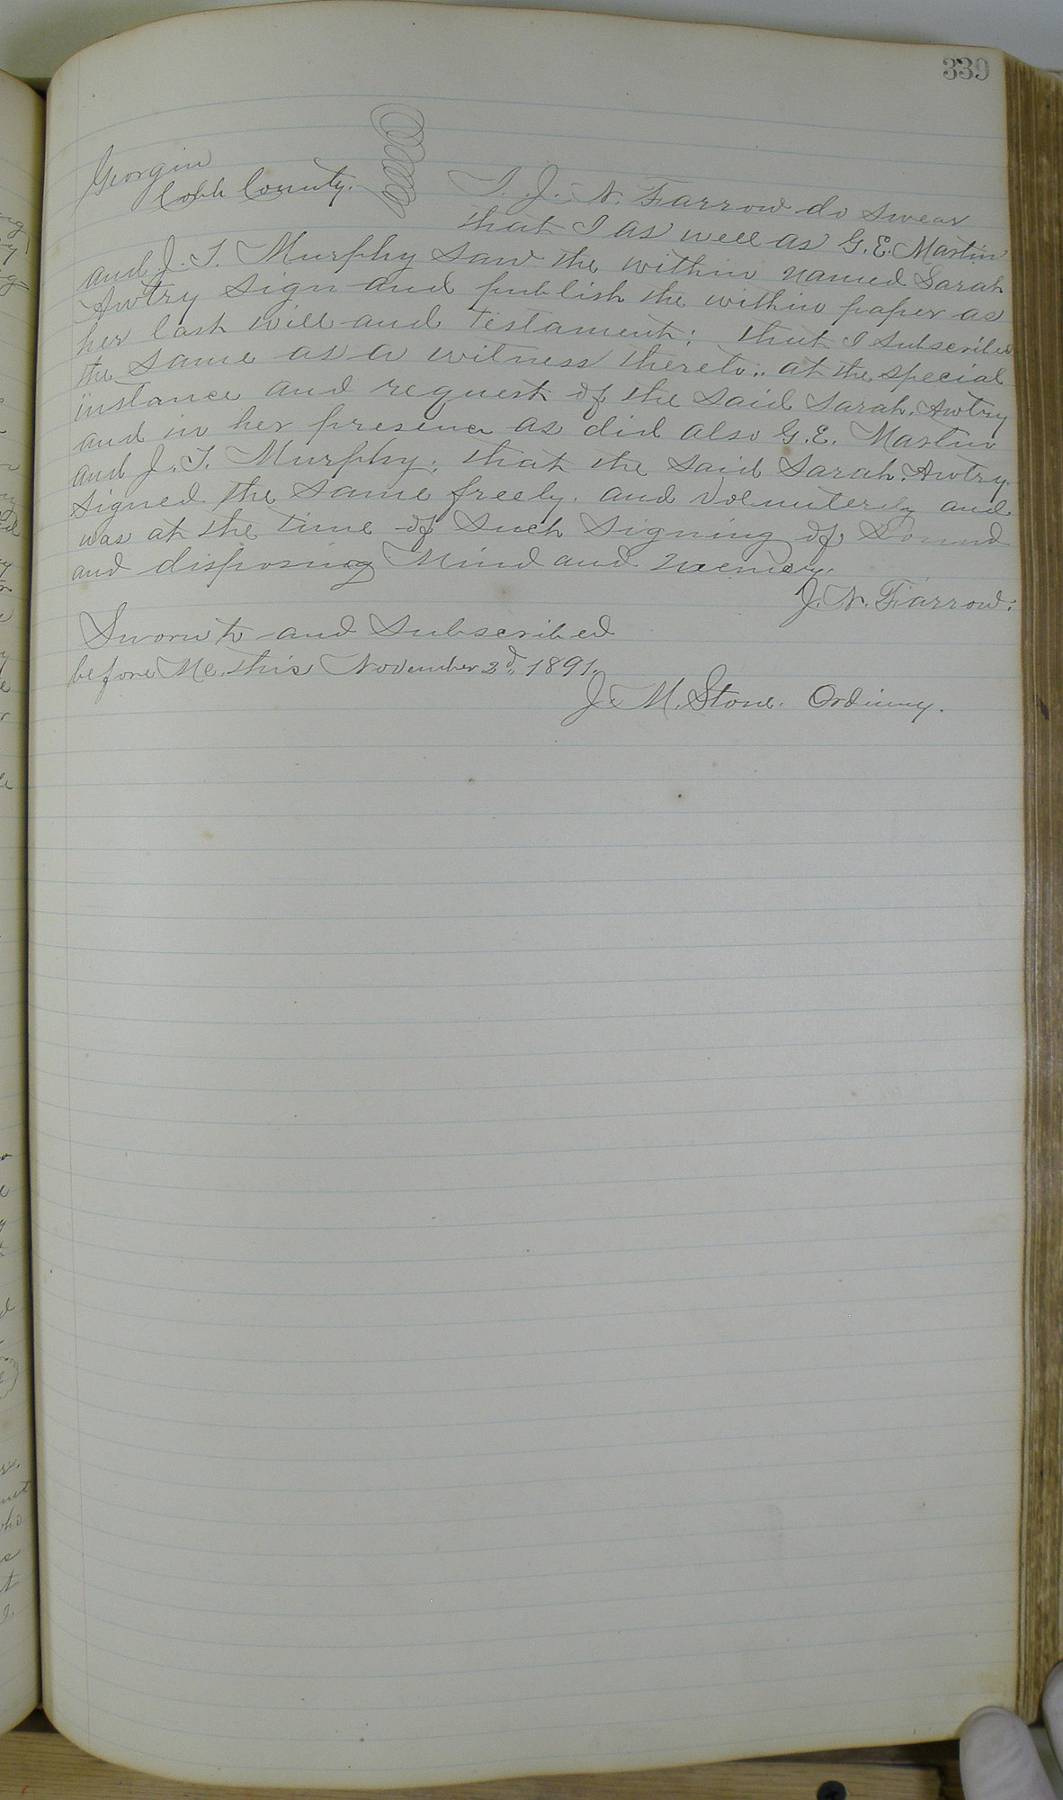 339
Georgia
Cobb County.
I. J. N. Farrow do swear
that I as well as G. E. Martin
and J. T. Murphy saw the within named Sarah
Awtry sign and publish the within paper as
her last will and testament; that I subscribed
the same as a witness thereto; at the special
instance and request of the said Sarah. Awtry
and in her presence as did also G. E. Martin
and J. T. Murphy; that the said Sarah. Awtry.
signed the same freely. and volunterly and
was at the time of such signing of sound
and disposing mind and memory.
J. N. Farrow.
Sworn to and subscribed
before me. this November 2d, 1891.
J. M. Stone. Ordinary.